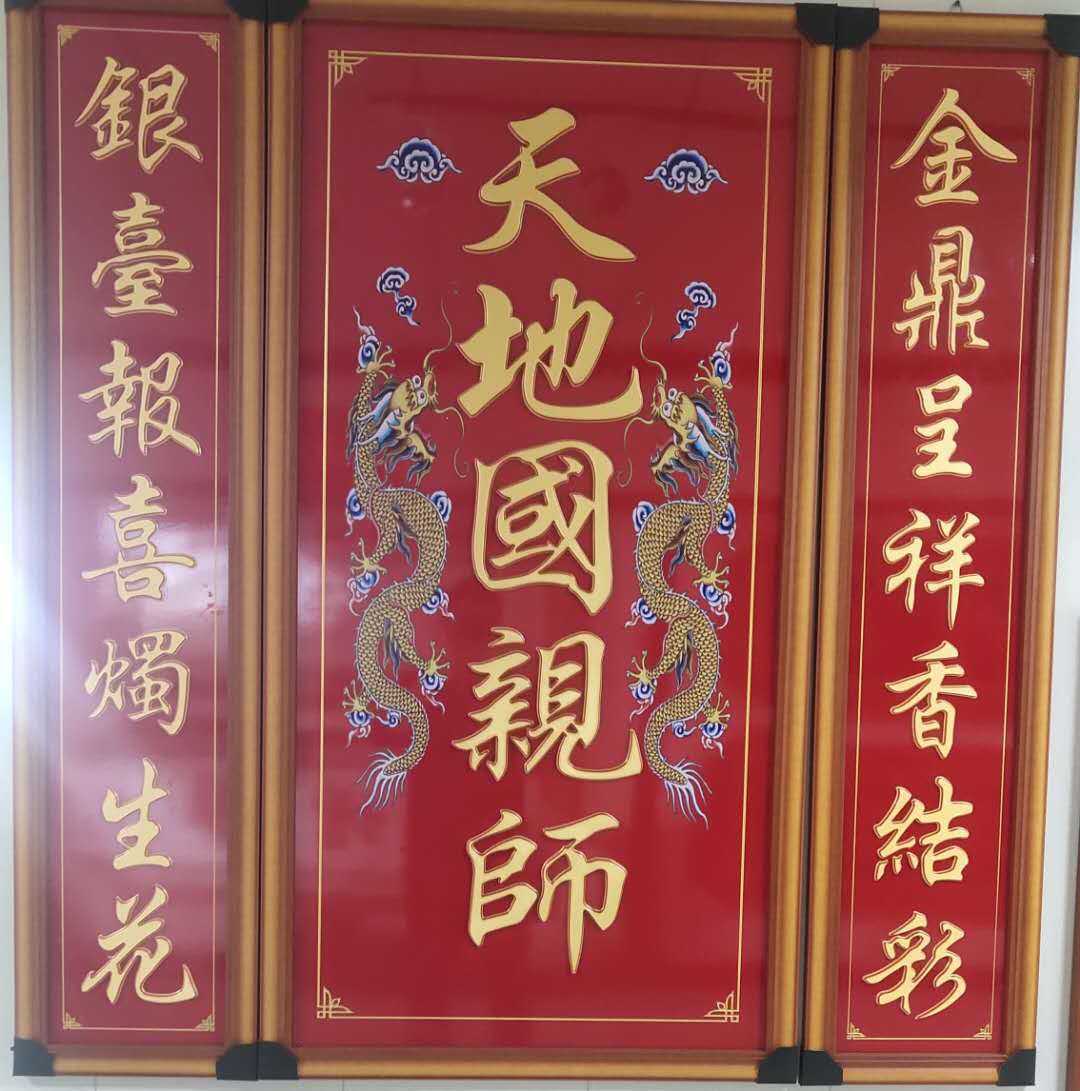 金鼎呈祥香結彩
天地國親師
銀臺報喜燭生花